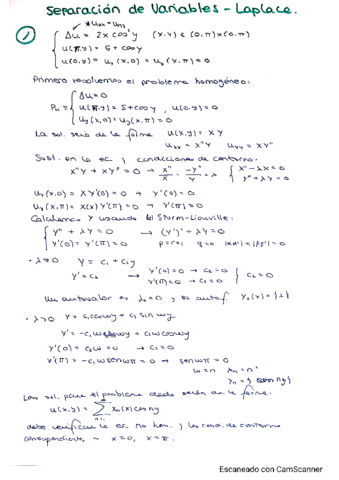 Separación de Variables - Laplace.
* uxx = uyy
① { Δu = 2x cos²y (x,y) ∈ (0,π)x(0,π)
u(π,y) = 5 + cosy
u(0,y) = uy(x,0) = uy(x,π) = 0
Primero resolvemos el problema homogéneo:
{ Δu = 0
PH = { u(π,y) = 5 + cosy , u(0,y) = 0
uy(x,0) = uy(x,π) = 0
La sol. será de la forma u(x,y) = XY
uxx = X''Y uyy = XY''
Sust. en la ec y condiciones de contorno:
X''Y + XY'' = 0 → X''/X = -Y''/Y = λ { X'' - λX = 0
Y'' + λY = 0
uy(x,0) = X Y'(0) = 0 → Y'(0) = 0
uy(x,π) = X(x) Y'(π) = 0 → Y'(π) = 0
Calculamos Y usando el Sturm-Liouville:
{ Y'' + λY = 0 → (Y')' + λY = 0
Y'(0) = Y'(π) = 0 p=r=1 q=0
· λ=0 Y = c1 + c2y
Y' = c2 → Y'(0) = 0 → c2 = 0
Y'(π) = 0 → c2 = 0 } c2 = 0
Un autovalor es λ0 = 0 y su autof Y0(y) = {1}
· λ>0 Y = c1 coswy + c2 sen wy
Y' = -c1 w senwy + c2 w coswy
Y'(0) = c2w = 0 → c2 = 0
Y'(π) = -c1 w senwπ = 0 → senwπ = 0
w = n λn = n²
Yn = { cos ny}
Las sol. para el problema dado serán de la forma:
u(x,y) = Σ Xn(x) cos ny
debe verificar la ec no hom. y las cond. de contorno
correspondiente, x=0, x=π.
Escaneado con CamScanner